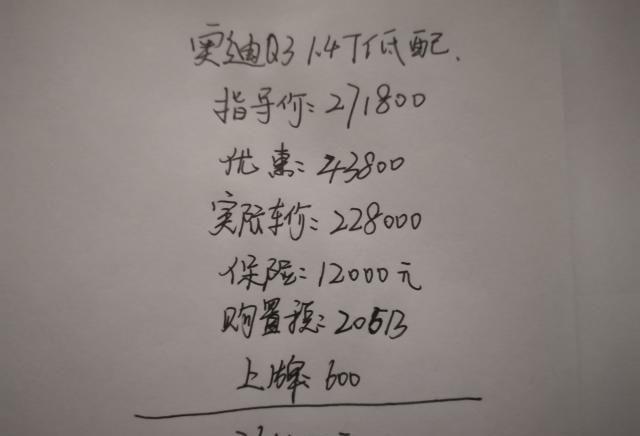 奥迪Q3 1.4T低配.
指导价:271800
优惠:43800
实际车价:228000
保险:12000元
购置税:20513
上牌:600